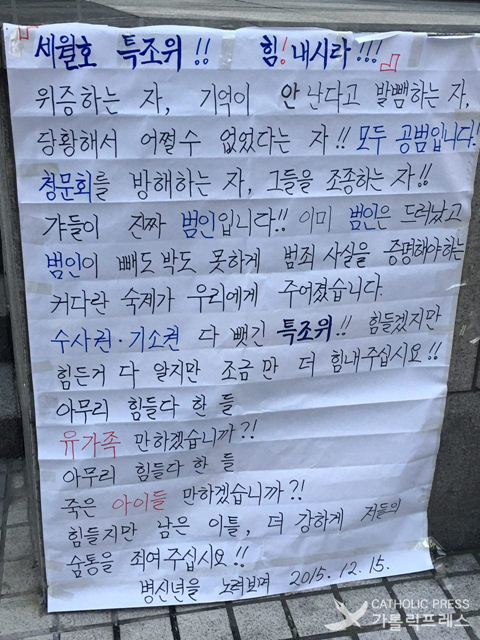 세월호 특조위!! 힘! 내시라!!!
위증하는 자, 기억이 안 난다고 발뺌하는 자,
당황해서 어쩔 수 없었다는 자!! 모두 공범입니다!
청문회를 방해하는 자, 그들을 조종하는 자!!
갸들이 진짜 범인입니다!! 이미 범인은 드러났고
범인이 빼도 박도 못하게 범죄 사실을 증평해야하는
커다란 숙제가 우리에게 주어졌습니다.
수사권·기소권 다 뺏긴 특조위!! 힘들겠지만
힘든거 다 알지만 조금만 더 힘내주십시요!!
아무리 힘들다 한 들
유가족 만하겠습니까?!
아무리 힘들다 한 들
죽은 아이들 만하겠습니까?!
힘들지만 남은 이틀, 더 강하게 저들의
숨통을 죄여주십시요!!
병신년을 노려보며 2015.12.15.
CATHOLIC PRESS
가톨릭프레스